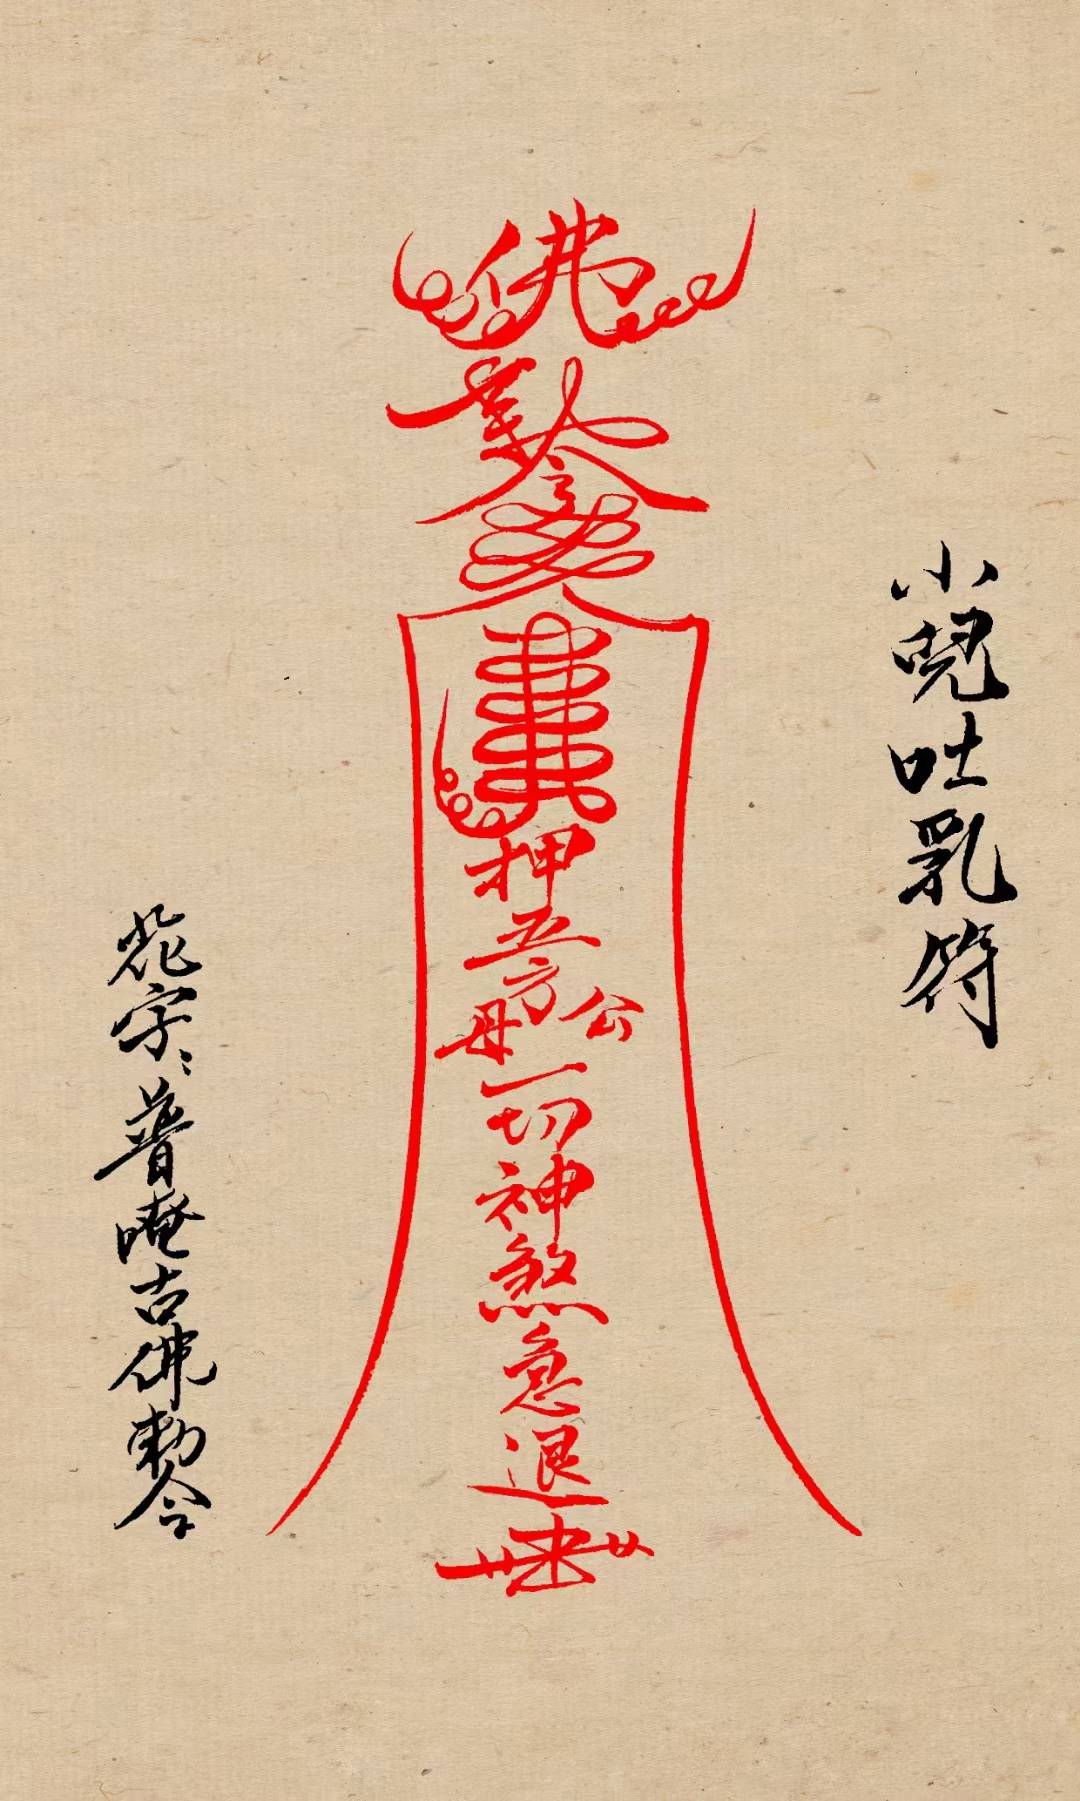 小兒吐乳符
佛
敕令
押五方公母一切神煞急退
花字:普唵古佛勅令